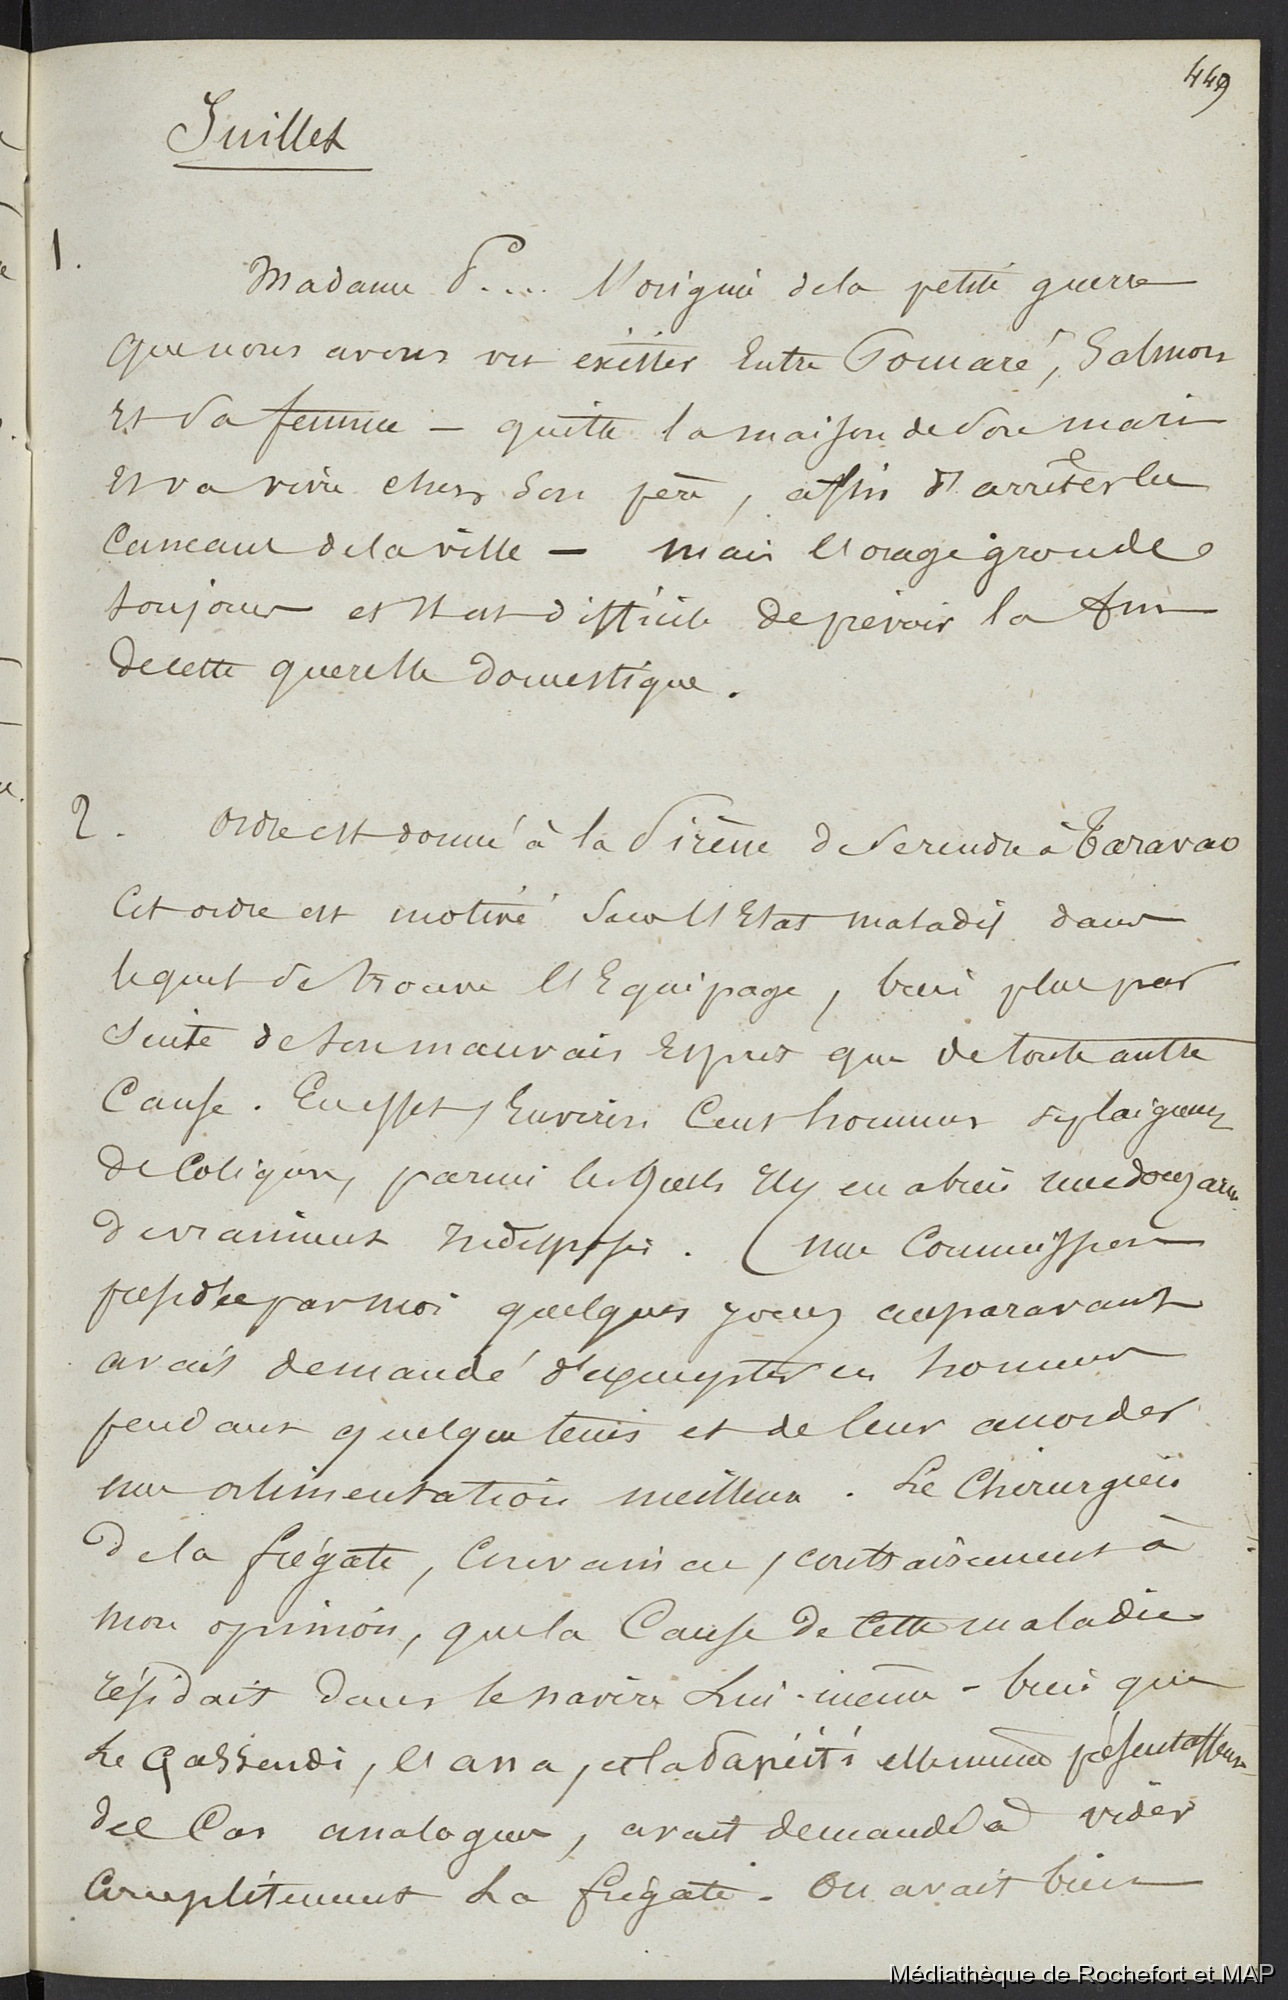 449
Juillet
1.
Madame S.... l'origine de la petite guerre
que nous avons vu exister entre Pomaré, Salmon
et sa femme - quitte la maison de son mari
et va vivre chez son père, afin d'arrêter les
cancans de la ville - mais l'orage gronde
toujours et il est difficile de prévoir la fin
de cette querelle domestique.
2. Ordre est donné à la Sirène de se rendre à Taravao
Cet ordre est motivé sur l'Etat maladif dans
lequel se trouve l'Equipage, bien plus par
suite de son mauvais esprit que de toute autre
Cause. En effet, Environ Cent hommes se plaignent
de Coliques, parmi lesquels il y en a bien une douzaine
de vraiment indisposés. (une Commission
présidée par moi quelques jours auparavant
avait demandé d'exempter ces hommes
pendant quelque tems et de leur accorder
une alimentation meilleure. Le Chirurgien
de la frégate, Convaincu, contrairement à
mon opinion, que la Cause de Cette maladie
résidait dans le navire Lui-même - bien que
Le Gassendi, et la Papéiti elle même présentassent
des Cas analogues, avait demandé à vider
Complètement La frégate. On avait bien
Médiathèque de Rochefort et MAP